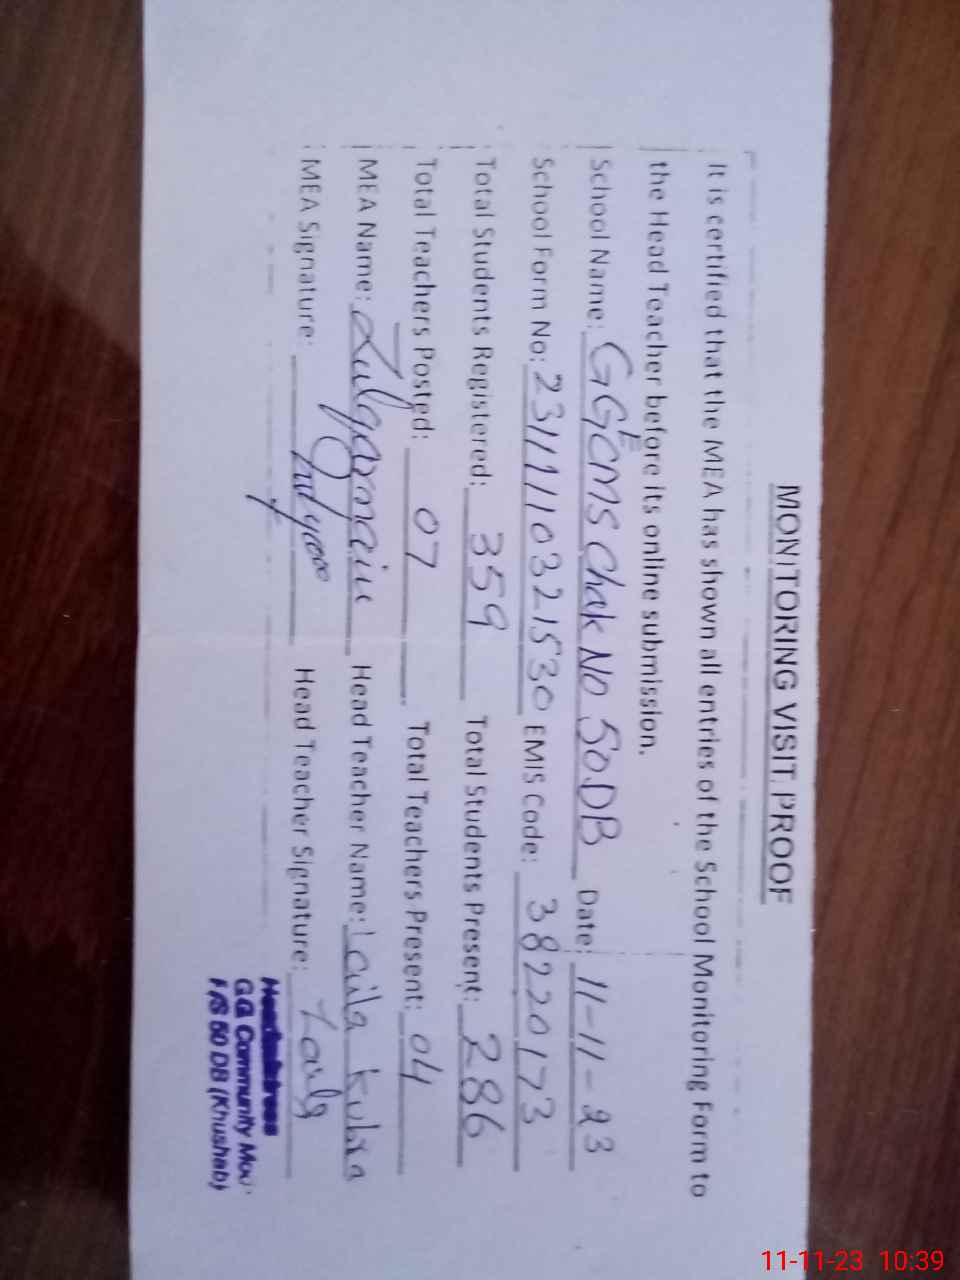 MONITORING VISIT PROOF
It is certified that the MEA has shown all entries of the School Monitoring Form to
the Head Teacher before its online submission.
School Name: GGECMS Chak No 50.DB Date: 11-11-23
School Form No: EMIS Code: 38220173
Total Students Registered: 359 Total Students Present: 286
Total Teachers Posted: 07 Total Teachers Present: 04
MEA Name: Zulqarnain Head Teacher Name: Laila Kubra
MEA Signature: Head Teacher Signature: Laila
Headmistress
G.G Community Mod
H/S 50 DB (Khushab)
11-11-23 10:39